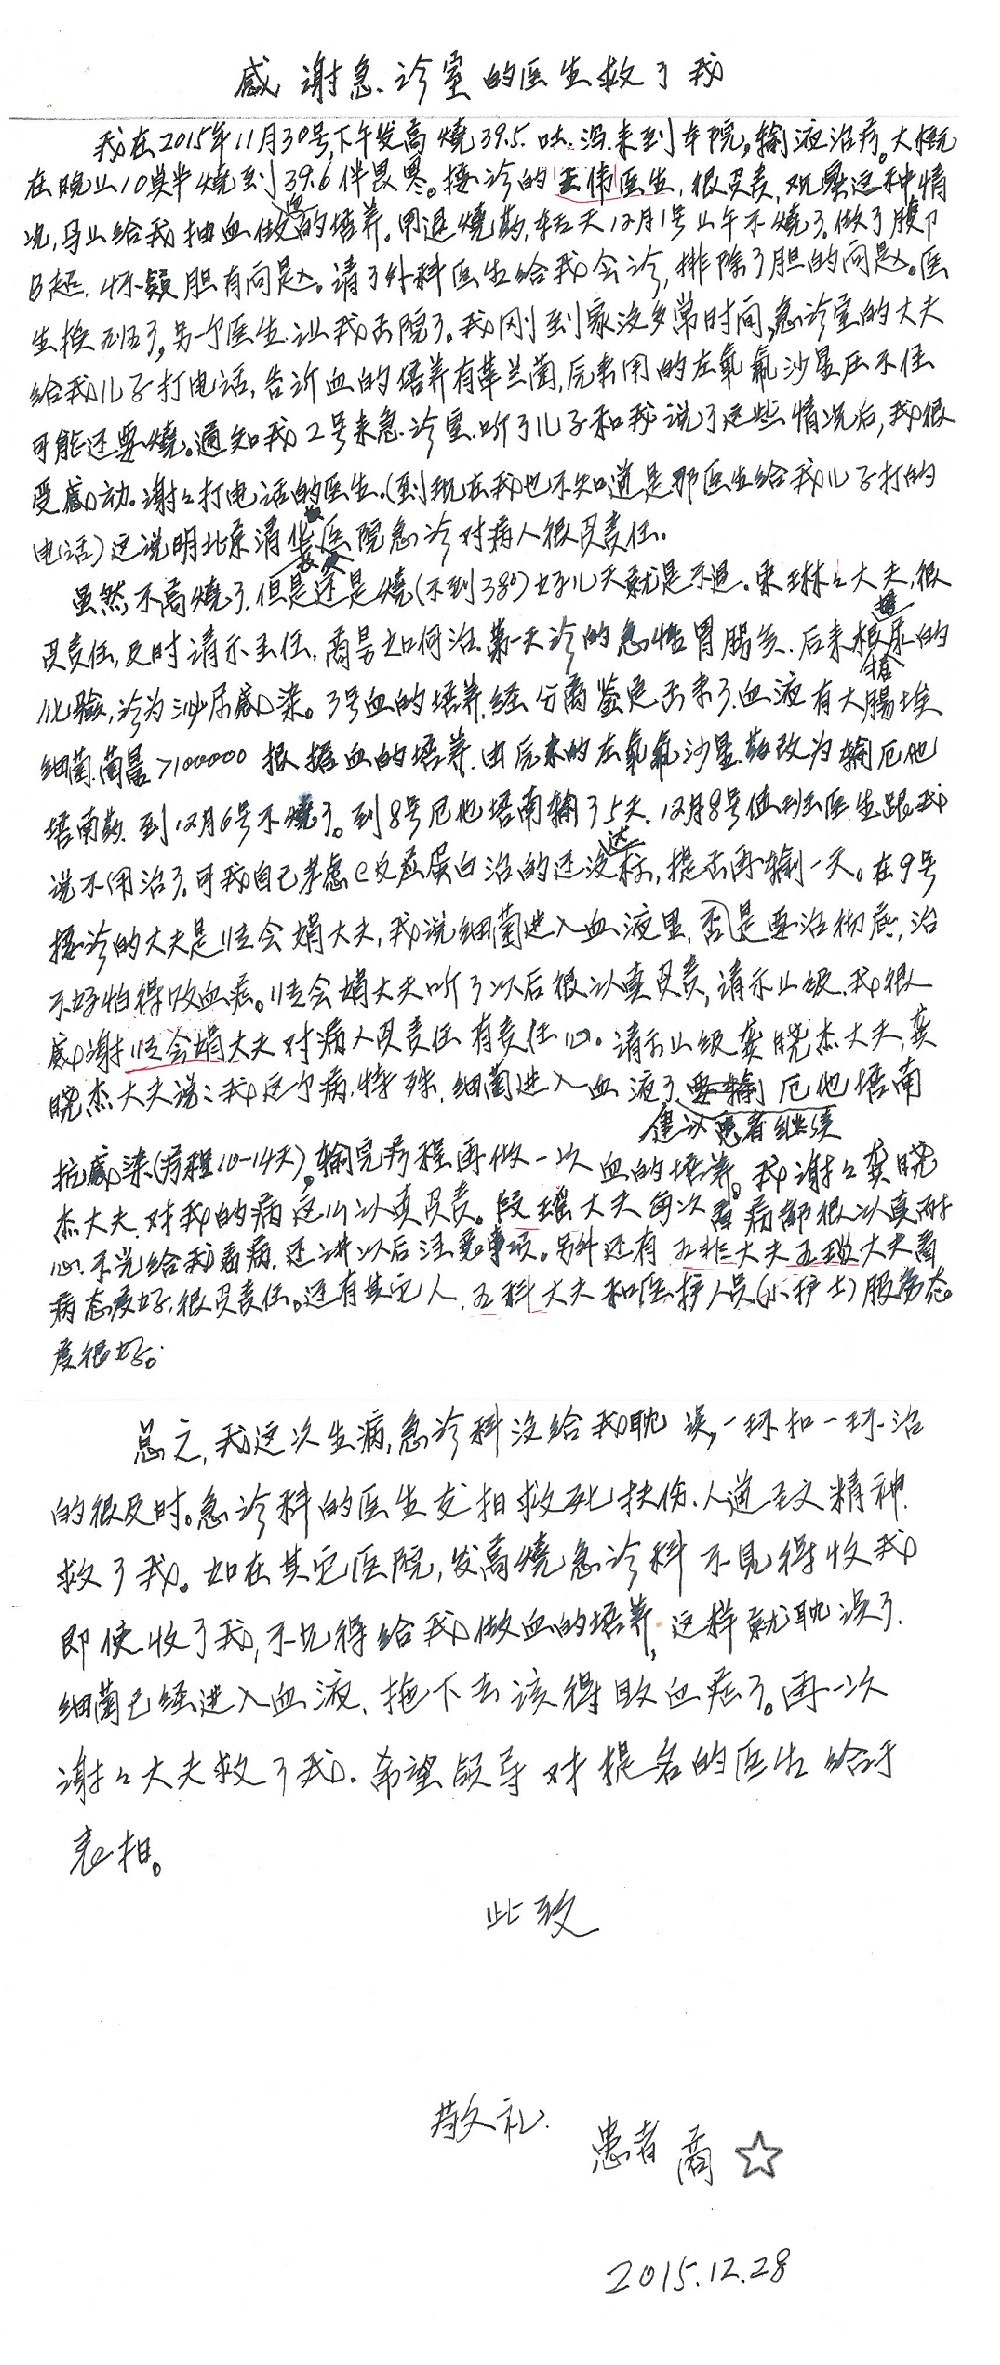 感谢急诊室的医生救了我
我在2015年11月30号,下午发高烧39.5.吐.泻.来到本院,输液治疗。大概
在晚上10点半烧到39.6伴畏寒。接诊的王伟医生,很负责,观察这种情
况,马上给我抽血做血的培养。用退烧药,转天12月1号上午不烧了。做了腹部
B超.怀疑胆有问题。请了外科医生给我会诊,排除了胆的问题。医
生换班了,另一个医生.让我出院了。我刚到家没多常时间,急诊室的大夫
给我儿子打电话,告诉血的培养有革兰菌,原来用的左氧氟沙星压不住
可能还要烧。通知我2号来急诊室.听了儿子和我说了这些情况后,我很
受感动。谢谢打电话的医生.(到现在我也不知道是那医生给我儿子打的
电话)这说明北京清华长庚医院急诊对病人很负责任.
虽然不高烧了.但是还是烧(不到38°)好几天就是不退。宋琳琳大夫,很
负责任,及时请示主任,商量如何治.第一天诊的急性胃肠炎.后来根据尿的
化验,诊为泌尿感染。3号血的培养.经分离鉴定出来了.血液有大肠埃希
细菌.菌量>100000 根据血的培养.由原来的左氧氟沙星.药改为输厄他
培南药.到12月6号不烧了。到8号厄他培南输了5天.12月8号值班医生跟我
说不用治了.可我自己考虑C反应蛋白治的还没达标,提出再输一天。在9号
接诊的大夫是 会娟大夫,我说细菌进入血液里,否是要治彻底,治
不好怕得败血症。 会娟大夫听了以后很认真负责,请示上级.我很
感谢 会娟大夫对病人负责任有责任心。请示上级龚晓杰大夫,龚
晓杰大夫说:我这个病.特殊.细菌进入血液了.建议患者继续 厄他培南
抗感染(疗程10-14天),输完疗程再做一次血的培养。我谢谢龚晓
杰大夫.对我的病这么认真负责。段瑶大夫每次看病都很认真耐
心.不光给我看病.还讲以后注意事项。另外还有王非大夫 大夫看
病态度好.很负责任。还有其它人.五科大夫和医护人员(小护士)服务态
度很好。
总之,我这次生病,急诊科没给我耽误,一环扣一环.治
的很及时。急诊科的医生发扬救死扶伤.人道主义精神.
救了我。如在其它医院,发高烧急诊科不见得收我
即使收了我,不见得给我做血的培养,这样就耽误了.
细菌已经进入血液.拖下去该得败血症了。再一次
谢谢大夫救了我.希望领导对提名的医生给予
表扬。
此致
敬礼.
患者 商☆
2015.12.28